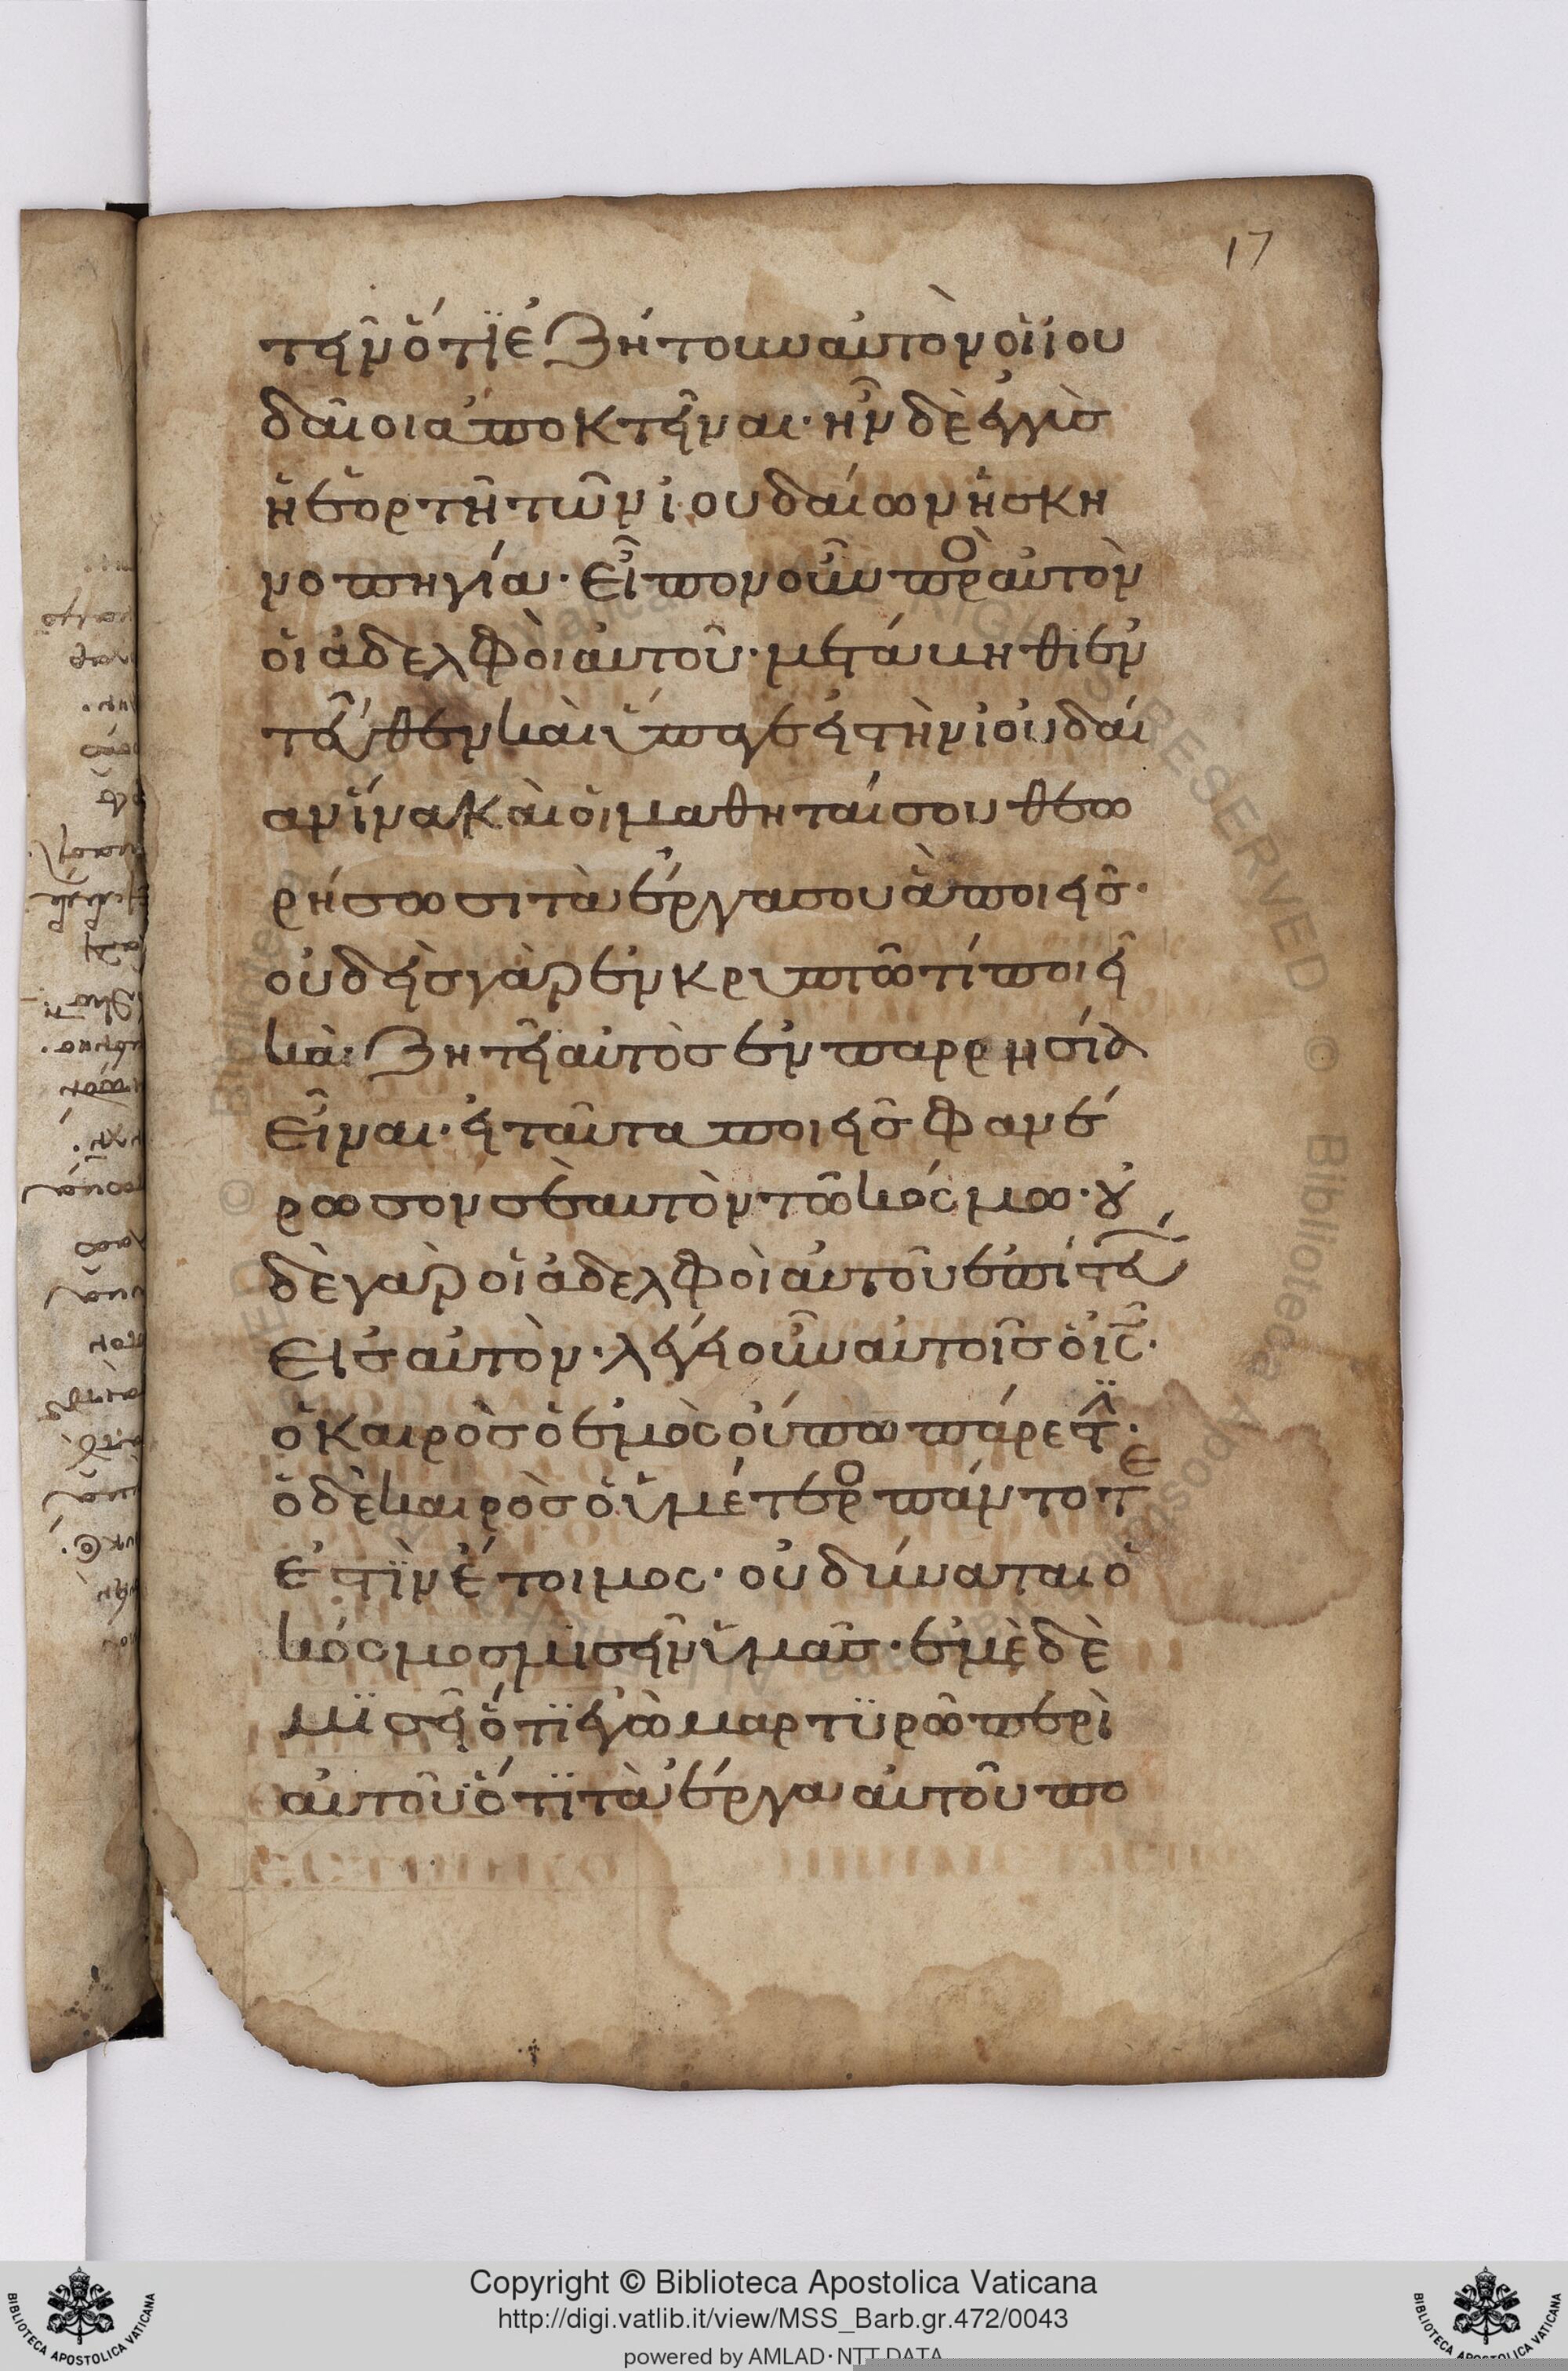 17
τεῖν ὅτι ἐζήτουν αὐτὸν οἱ ἰου
δαῖοι ἀποκτεῖναι· ἦν δὲ ἐγγὺσ
ἡ ἑορτὴ τῶν ἰουδαίων ἡ σκη
νοπηγία· εἶπον οὖν πρὸ αὐτὸν
οἱ ἀδελφοὶ αὐτοῦ· μετάβηθι ἐν
τεῦθεν καὶ ὕπαγε εἰ τὴν ἰουδαί
αν ἵνα καὶ οἱ μαθηταί σου θεω
ρήσωσι τὰ ἔργα σου ἃ ποιεῖσ·
οὐδεὶσ γὰρ ἐν κρυπτῶ τί ποιεῖ
καὶ ζητεῖ αὐτὸσ ἐν παρρησία
εἶναι· εἰ ταῦτα ποιεῖσ φανέ
ρωσον σεαυτὸν τῶ κόσμω· ȣ̓
δὲ γὰρ οἱ ἀδελφοὶ αὐτοῦ ἐπίστευ
εἰσ αὐτὸν· λέγει οὖν αὐτοῖσ ὁ ἰς̅·
ὁ καιρὸσ ὁ ἐμὸς οὔπω πάρεστ·
ὁ δὲ καιρὸσ ὁ ὑμέτερο πάντοτε
ἐστὶν ἕτοιμος· οὐ δύναται ὁ
κόσμοσ μισεῖν ὑμᾶσ· ἐμὲ δὲ
μισεῖ ὅτι ἐγὼ μαρτυρῶ περὶ
αὐτοῦ ὅτι τὰ ἔργα αὐτοῦ πο
Copyright © Biblioteca Apostolica Vaticana
http://digi.vatlib.it/view/MSS_Barb.gr.472/0043
powered by AMLAD·NTT DATA
BIBLIOTECA APOSTOLICA VATICANA
BIBLIOTECA APOSTOLICA VATICANA